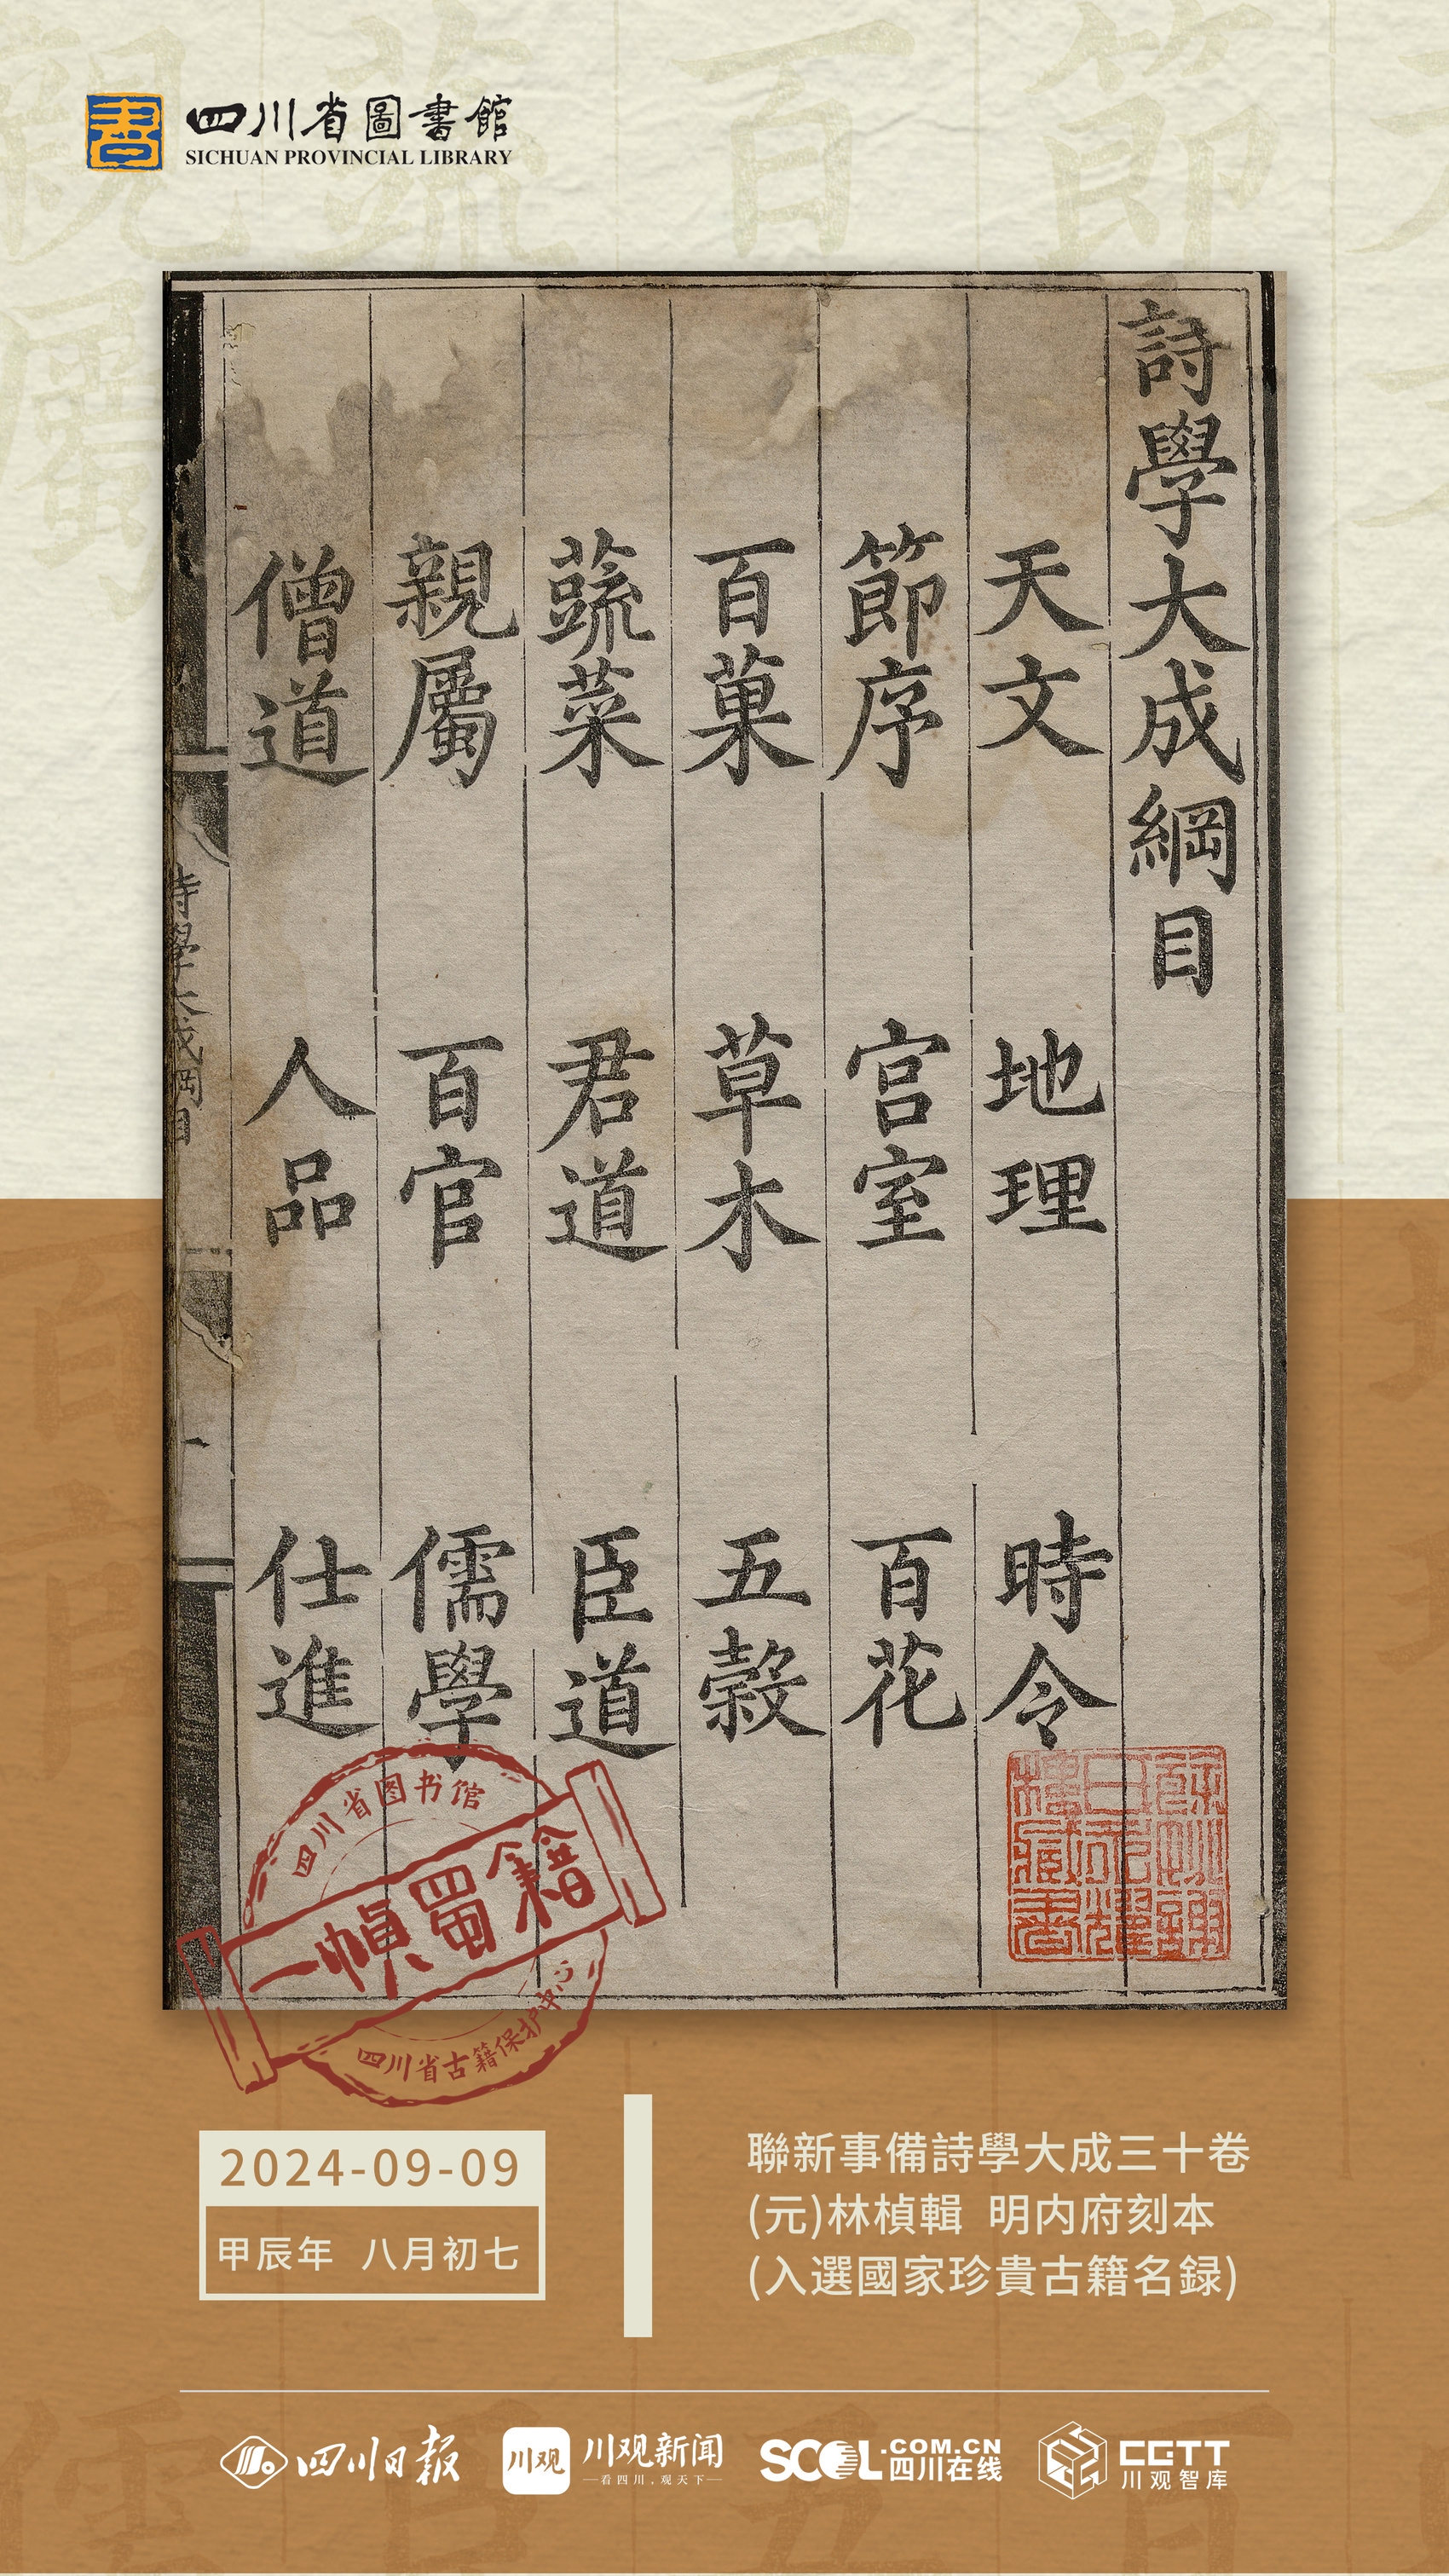 四川省圖書館
SICHUAN PROVINCIAL LIBRARY
詩學大成綱目
天文 地理 時令
節序 宮室 百花
百菓 草木 五穀
蔬菜 君道 臣道
親屬 百官 儒學
僧道 人品 仕進
四川省图书馆
一幀蜀籍
四川省古籍保护中心
2024-09-09
甲辰年 八月初七
聯新事備詩學大成三十卷
(元)林楨輯 明内府刻本
(入選國家珍貴古籍名録)
四川日报
川观
川观新闻
看四川,观天下
SCOL.COM.CN
四川在线
CGTT
川观智库